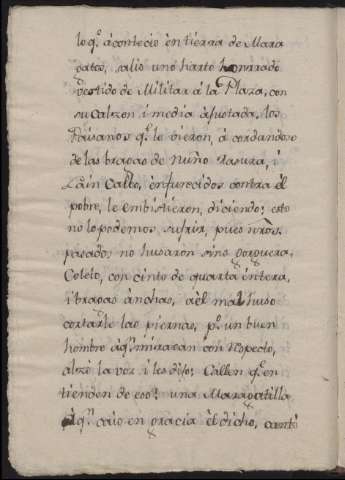 lo q.e aconteciò en tierra de Mara
gatos, salio uno harto honrrado
vestido de Militar à la Plaza, con
su calzon i media àjustada, los
Paisanos q.e le vieron, à cordandose
de las bragas de Nuño Rasura, i
Lain Calbo, ènfurecidos contra èl
pobre, le embistieron, diciendo: esto
no lo podemos sufrir, pues nrõs
pasados no husaron sino gorguera,
Coleto, con cinto de quarta èntera,
i bragas ànchas, àèl mal huso
cortarle las piernas, p.o un buen
hombre àq.n miraban con respecto,
alzò la voz i les dijo: Callen q.e en
tienden de eso: una Maragatilla
àq.n caio en gracia èl dicho, cantò